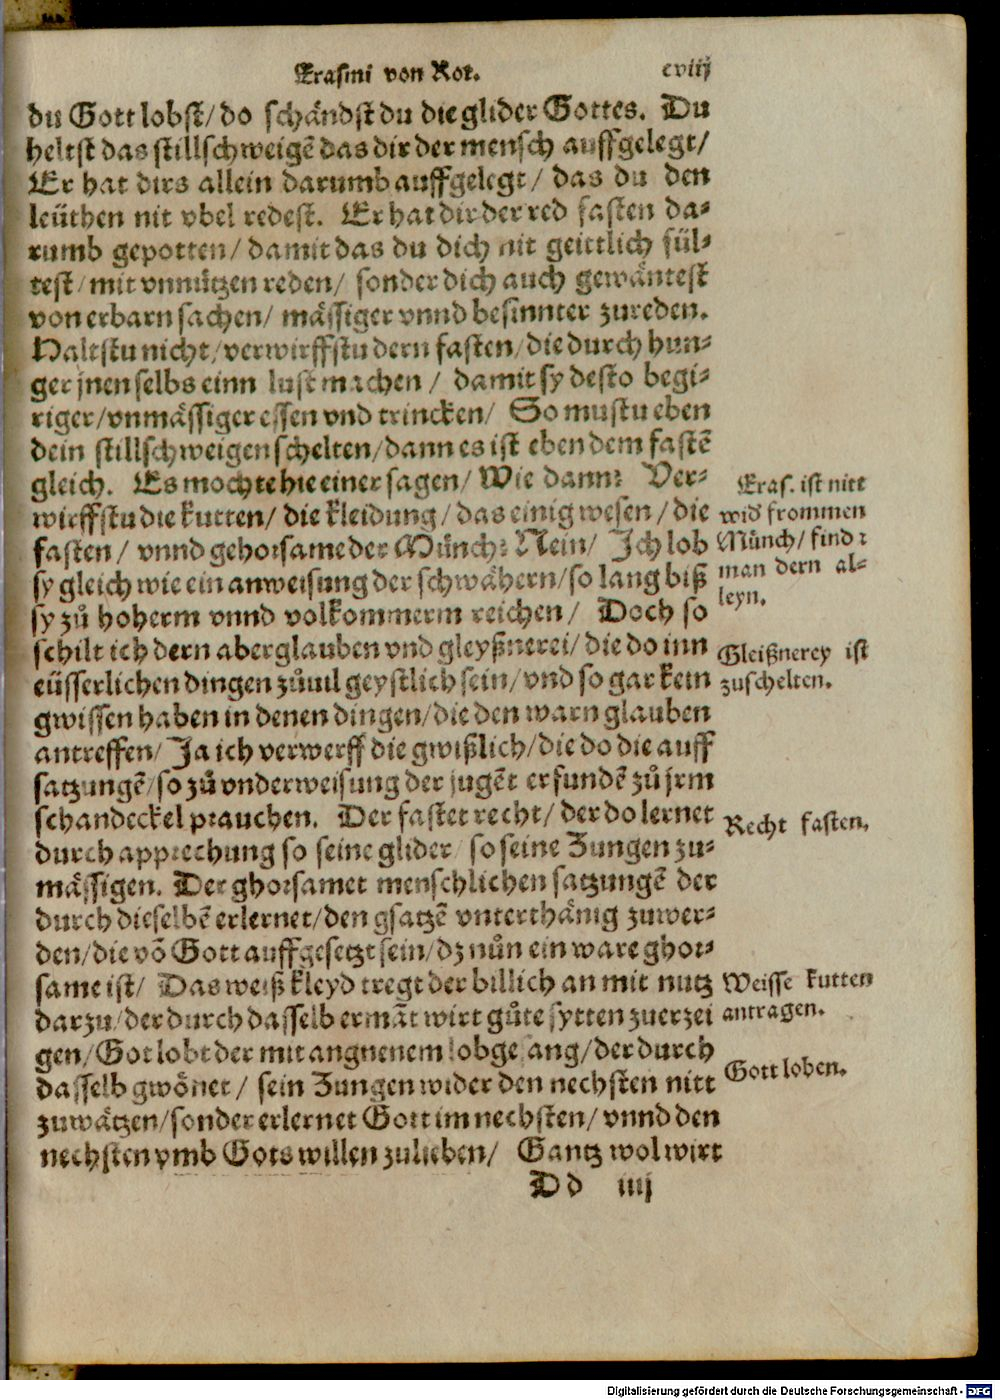 Erasmi von Rot. cviij
du Gott lobst/ do schändst du die glider Gottes. Du
heltst das stillschweigē das dir der mensch auffgelegt/
Er hat dirs allein darumb auffgelegt/ das du den
leüthen nit vbel redest. Er hat dir der red fasten da-
rumb gepotten/ damit das du dich nit geittlich fül-
test/ mit vnnützen reden/ sonder dich auch gewäntest
von erbarn sachen/ mässiger vnnd besinnter zureden.
Haltstu nicht/ verwirffstu dern fasten/ die durch hun-
ger jnen selbs einn lust machen/ damit sy desto begi-
riger/ vnmässiger essen vnd trincken/ So mustu eben
dein stillschweigen schelten/ dann es ist eben dem fastē
gleich. Es mochte hie einer sagen/ Wie dann? Ver-
wirffstu die kutten/ die kleidung/ das einig wesen/ die
fasten/ vnnd gehorsame der Münch? Nein/ Ich lob
sy gleich wie ein anweisung der schwähern/ so lang biß
sy zů hoherm vnnd volkommerm reichen/ Doch so
schilt ich dern aberglauben vnd gleyßnerei/ die do inn
eüsserlichen dingen zůuil geystlich sein/ vnd so gar kein
gwissen haben in denen dingen/ die den warn glauben
antreffen/ Ja ich verwerff die gwißlich/ die do die auff
satzungē/ so zů vnderweisung der jugēt erfundē zů jrm
schandeckel prauchen. Der fastet recht/ der do lernet
durch apprechung so seine glider/ so seine Zungen zu-
mässigen. Der ghorsamet menschlichen satzungē der
durch dieselbē erlernet/ den gsatzē vnterthänig zuwer-
den/ die vō Gott auffgesetzt sein/ dz nůn ein ware ghor-
same ist/ Das weiß kleyd tregt der billich an mit nutz
darzu/ der durch dasselb ermāt wirt gůte sytten zuerzei
gen/ Got lobt der mit angnenem lobgesang/ der durch
dasselb gwönet/ sein Zungen wider den nechsten nitt
zuwätzen/ sonder erlernet Gott im nechsten/ vnnd den
nechsten vmb Gots willen zulieben/ Gantz wol wirt
Dd iiij
Eras. ist nitt
wid frommen
Münch/ find?
man dern al-
leyn.
Gleißnerey ist
zuschelten.
Recht fasten.
Weisse kutten
antragen.
Gott loben.
Digitalisierung gefördert durch die Deutsche Forschungsgemeinschaft - DFG